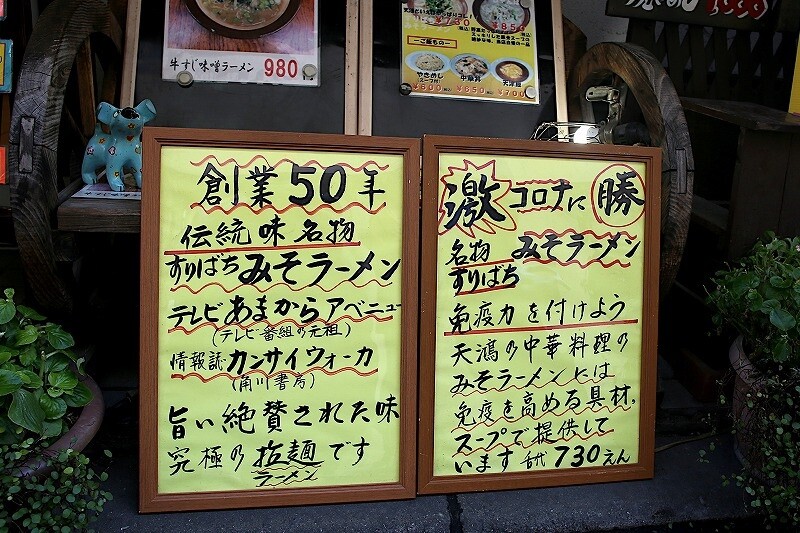 牛すじ味噌ラーメン 980
¥730
¥850
ご飯もの
やきめし
中華丼
天津飯
¥600
¥650
¥700
創業50年
伝統味名物
すりばちみそラーメン
テレビあまからアベニュー
(テレビ番組の元祖)
情報誌カンサイウォーカ
(角川書房)
旨い絶賛された味
究極の拉麺です
ラーメン
激コロナに勝
名物みそラーメン
すりばち
免疫力を付けよう
天鴻の中華料理の
みそラーメンには
免疫を高める具材,
スープで提供して
います 730えん